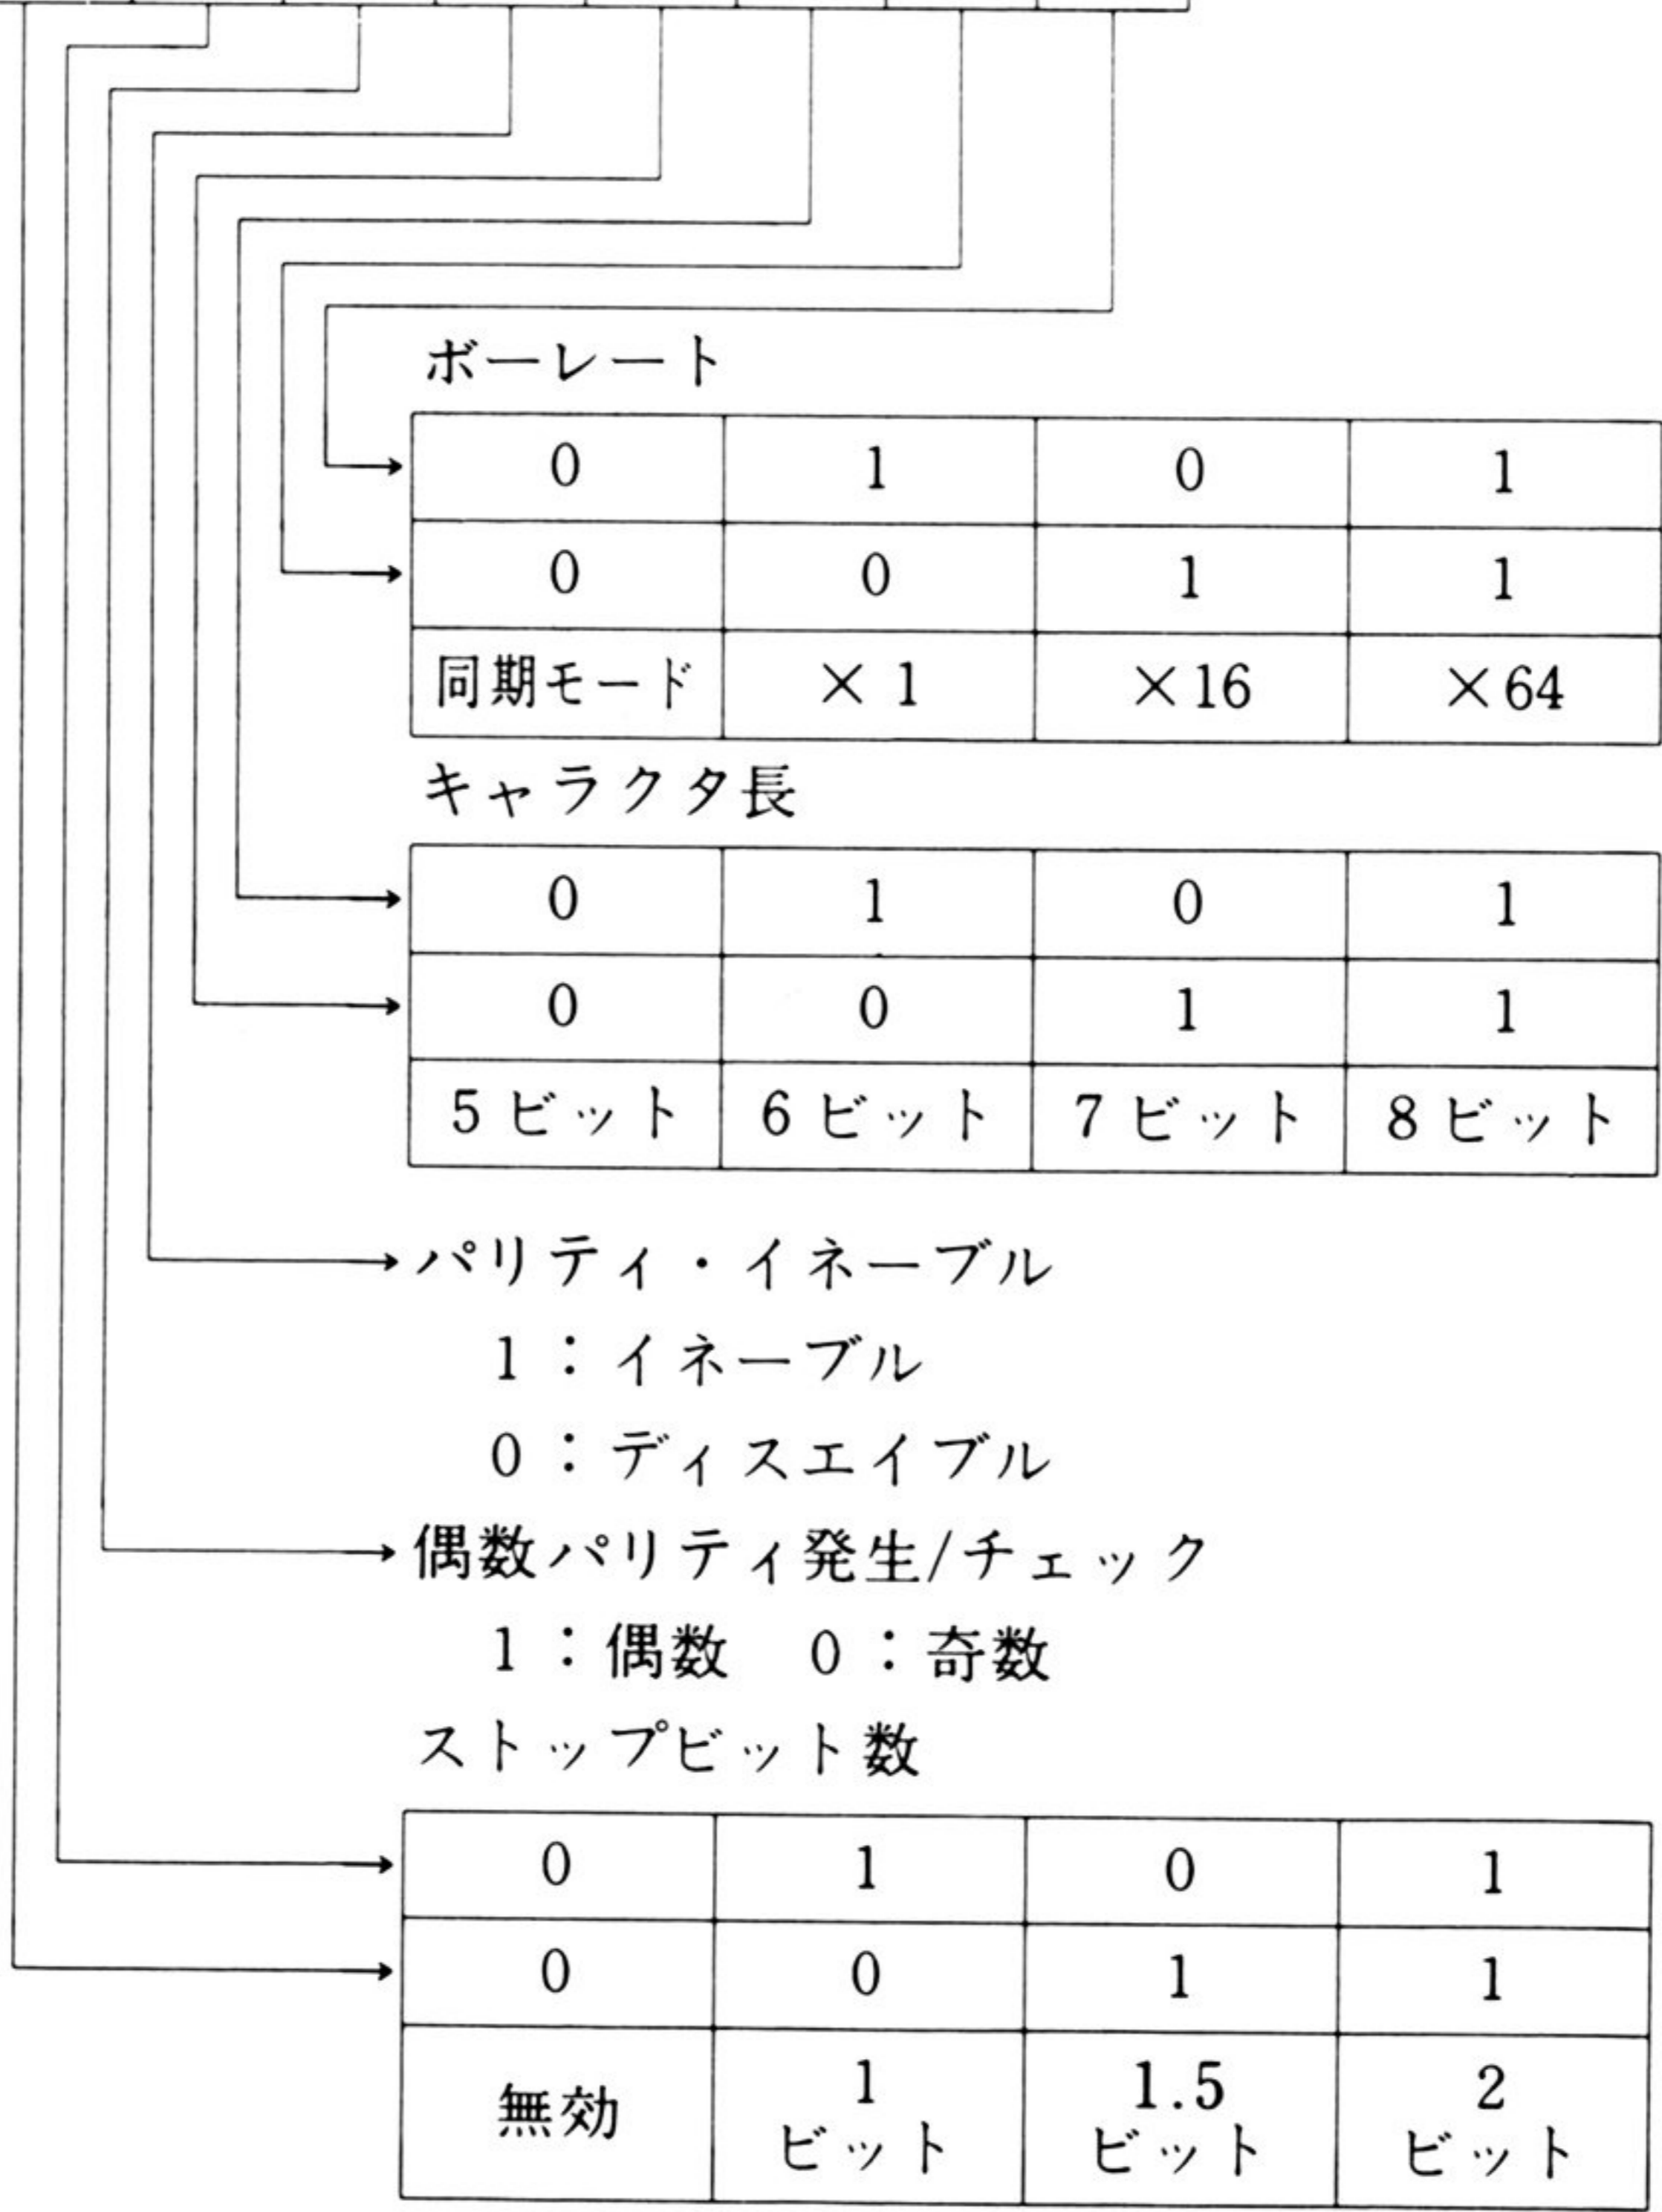 ボーレート
0 1 0 1
0 0 1 1
同期モード ×1 ×16 ×64
キャラクタ長
0 1 0 1
0 0 1 1
5ビット 6ビット 7ビット 8ビット
パリティ・イネーブル
1：イネーブル
0：ディスエイブル
偶数パリティ発生/チェック
1：偶数 0：奇数
ストップビット数
0 1 0 1
0 0 1 1
無効 1ビット 1.5ビット 2ビット